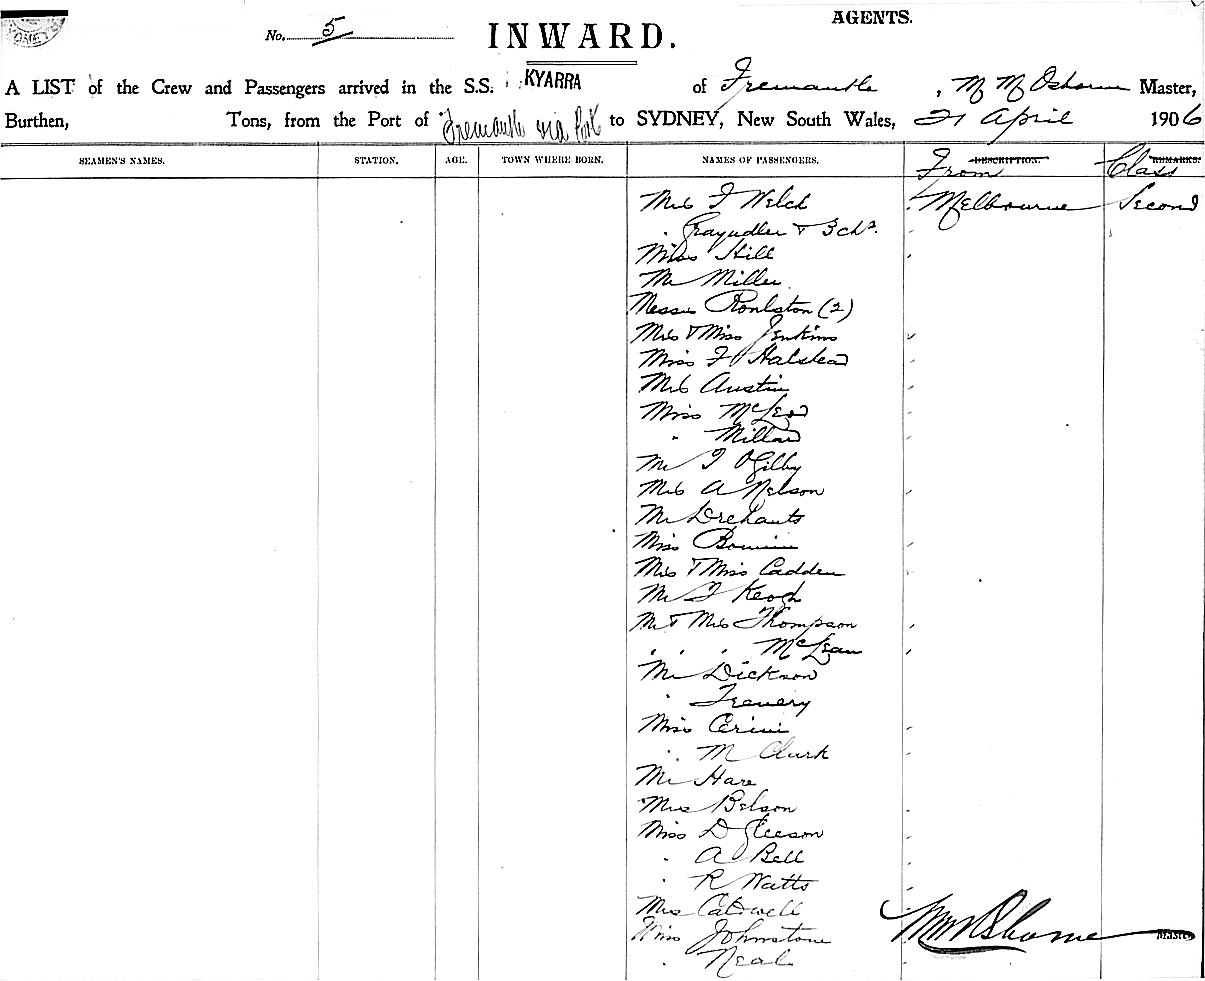 AGENTS.
No. 5
INWARD.
A LIST of the Crew and Passengers arrived in the S.S. KYARRA of Fremantle, M M Osborne Master,
Burthen, Tons, from the Port of Fremantle via Ports to SYDNEY, New South Wales, 21 April 1906
SEAMEN'S NAMES. STATION. AGE. TOWN WHERE BORN. NAMES OF PASSENGERS. DESCRIPTION. From REMARKS. Class
Mrs F Welch Melbourne Second
& 3 chn.
Miss Hill
Mr Miller
Messrs Ronlston (2)
Mrs & Miss Jenkins
Miss F Halstead
Mrs Austin
Miss McLeod
" Millard
Mr J Ogilby
Mrs A Nelson
Mr Drehants
Miss
Mrs & Miss Cadden
Mr J Keogh
Mr & Mrs Thompson
" " " McLean
Mr Dickson
" Trenery
Miss Cerini
" M Clark
Mr Hare
Mrs Belson
Miss D Gleeson
" A Bell
" R Watts
Mrs Caldwell
Miss Johnstone
" Neal
M M Osborne Master